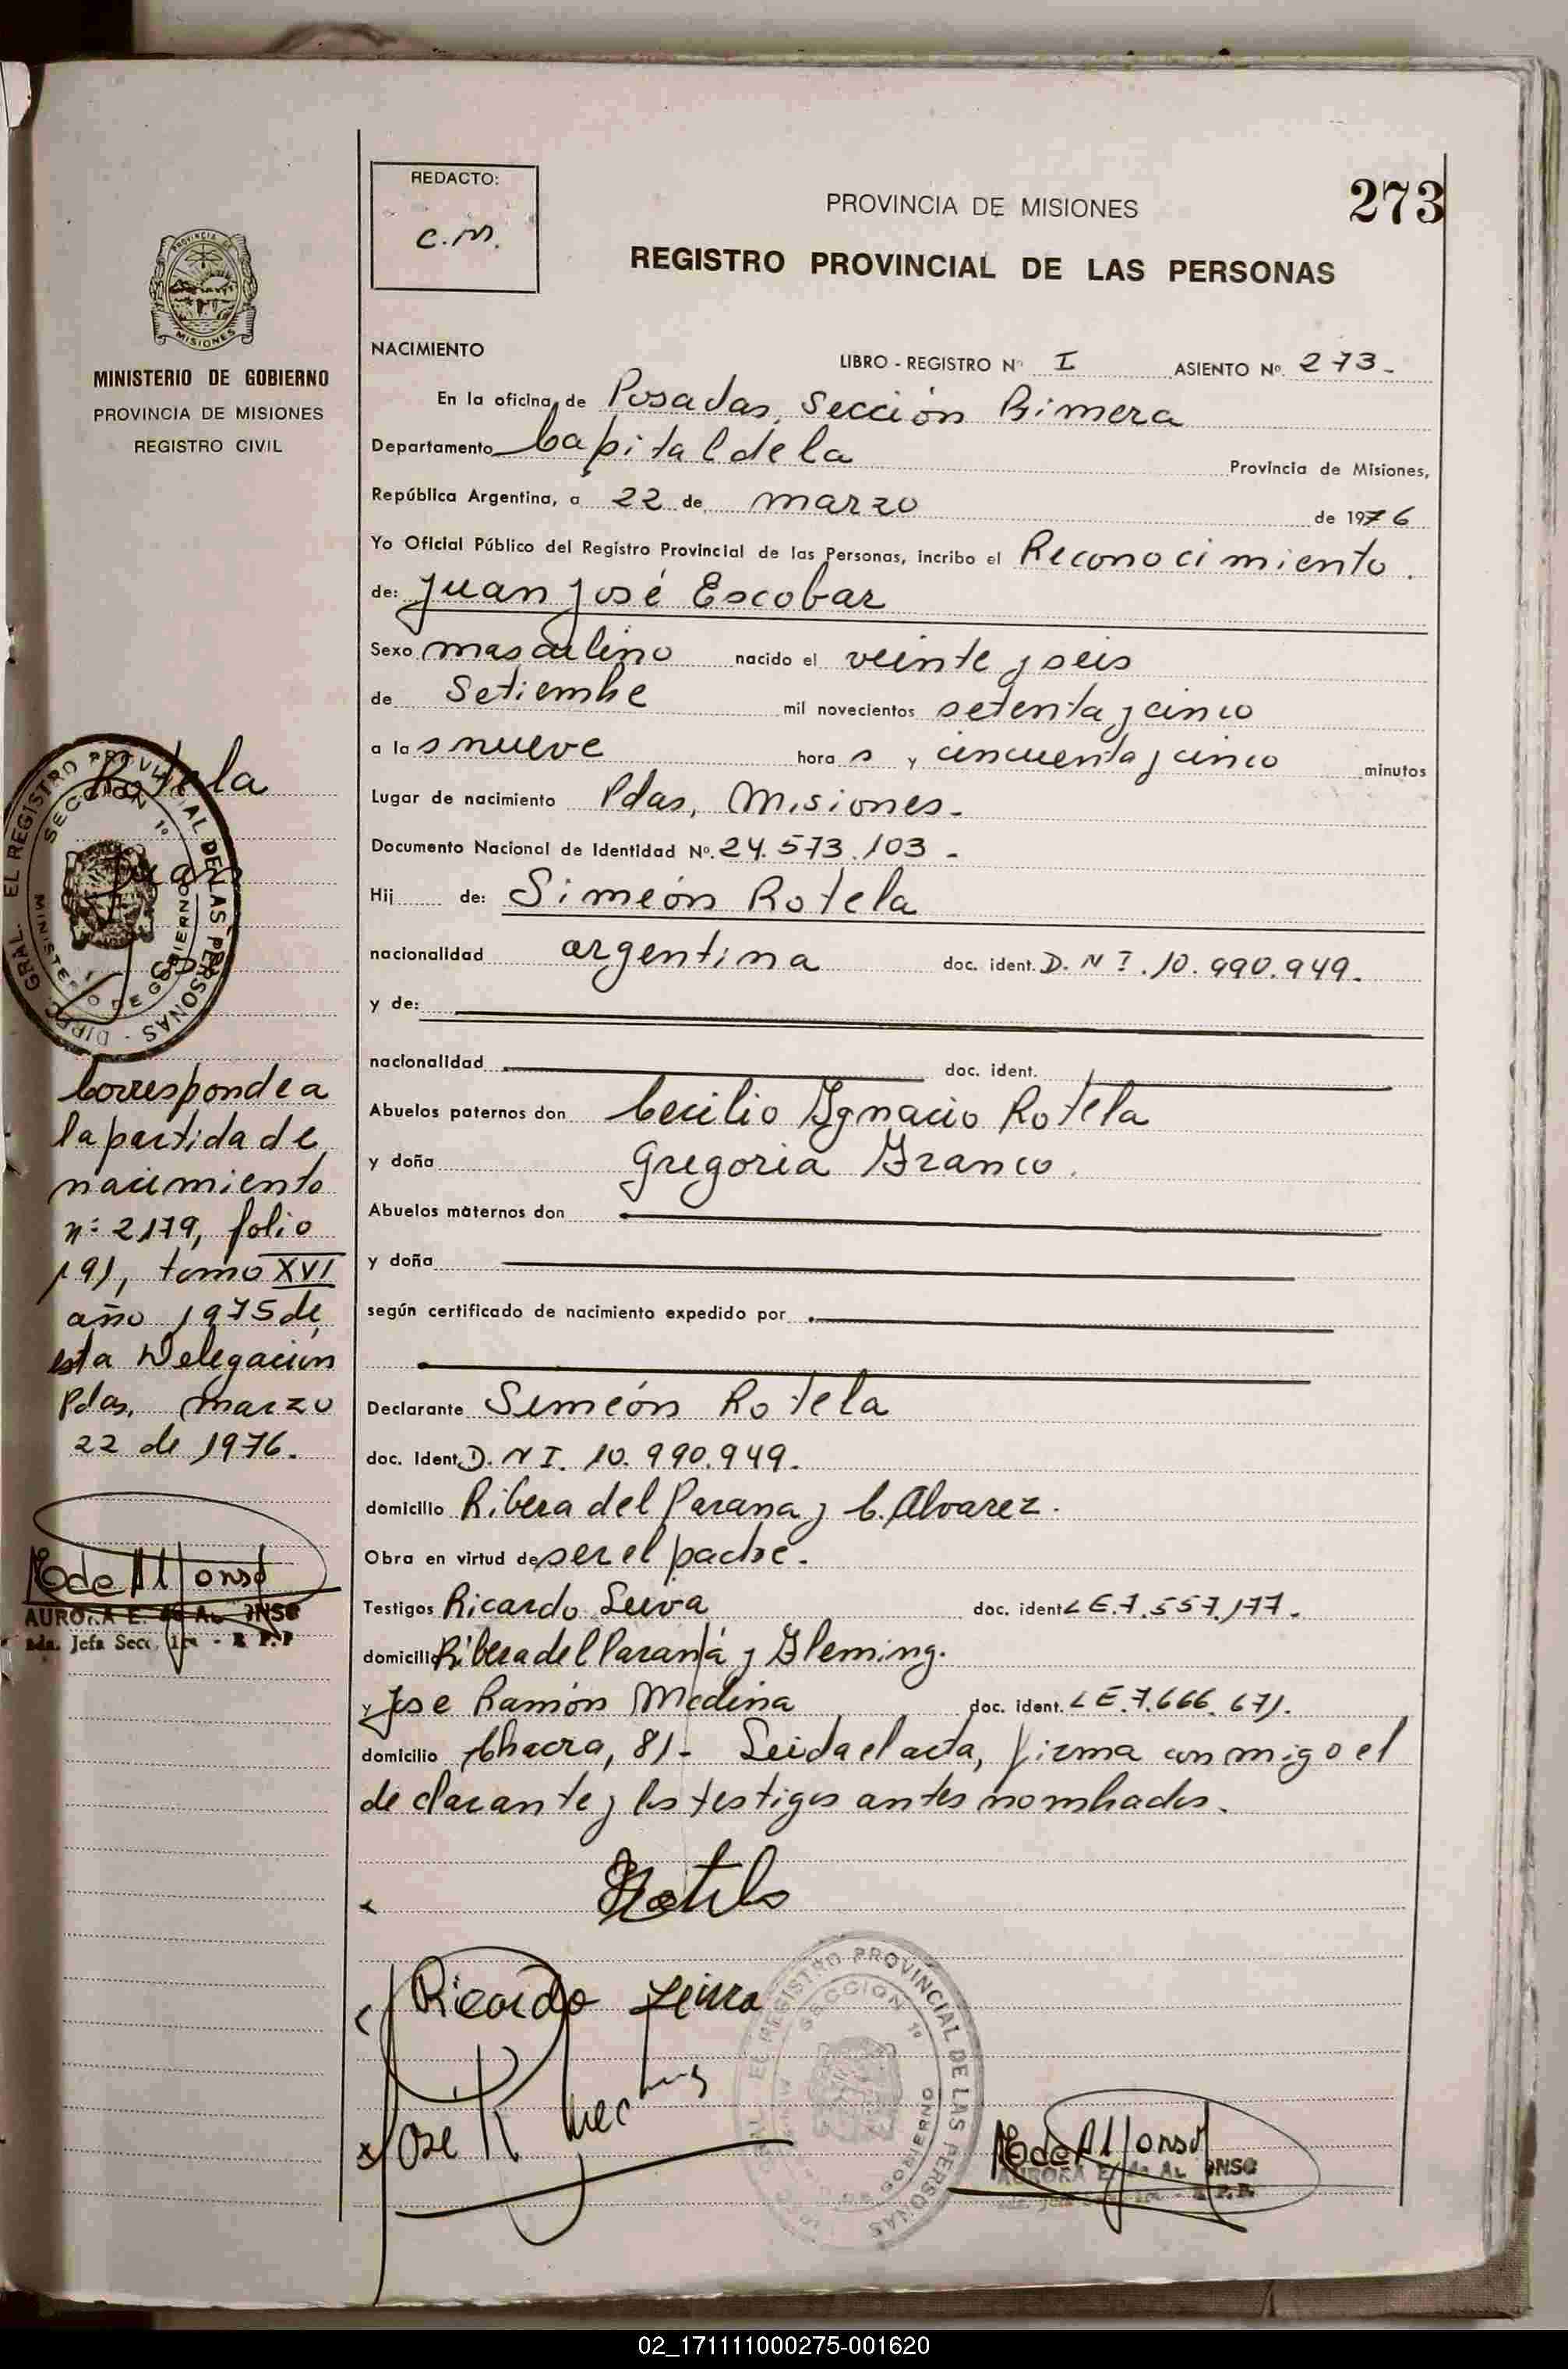 REDACTO:
C.M.
PROVINCIA DE MISIONES
273
REGISTRO PROVINCIAL DE LAS PERSONAS
MISIONES
MINISTERIO DE GOBIERNO
PROVINCIA DE MISIONES
REGISTRO CIVIL
NACIMIENTO
LIBRO - REGISTRO Nº I ASIENTO Nº. 273-
En la oficina de Posadas, Sección Primera
Departamento Capital de la Provincia de Misiones,
República Argentina, a 22 de marzo de 1976
Yo Oficial Público del Registro Provincial de las Personas, incribo el Reconocimiento.
de: Juan José Escobar
Sexo masculino nacido el veinte y seis
de Setiembre mil novecientos setenta y cinco
a las nueve horas y cincuenta y cinco minutos
Lugar de nacimiento Pdas, Misiones.-
Documento Nacional de Identidad Nº. 24.573.103 -
Hij de: Simeón Rotela
nacionalidad argentina doc. ident. D.N I. 10.990.949.
y de:
nacionalidad doc. ident.
Abuelos paternos don Cecilio Ygnacio Rotela
y doña Gregoria Franco.
Abuelos maternos don
y doña
según certificado de nacimiento expedido por
Declarante Simeón Rotela
doc. Ident. D. N I. 10.990.949.
domicilio Ribera del Parana y C. Alvarez.
Obra en virtud de ser el padre.
Testigos Ricardo Leiva doc. ident L E.7.557.177.
domicilio Ribera del Paraná y Fleming.
y Jose Ramón Medina doc. ident. L E.7.666.671.
domicilio Chacra, 81- Leida el acta, firma conmigo el
declarante y los testigos antes nombrados.
Rotela
Ricardo Leiva
Jose R
EL REGISTRO PROVINCIAL DE LAS PERSONAS
SECCION 1º
AURORA E. de ALFONSO
Rotela
Juan
EL REGISTRO PROVINCIAL DE LAS PERSONAS - DIREC. GRAL.
SECCION 1º
MINISTERIO DE GOBIERNO
Corresponde a
la partida de
nacimiento
nº 2179, folio
191, tomo XVI
año 1975 de
esta Delegación
Pdas, marzo
22 de 1976.
AURORA E. de ALFONSO
Jefa Secc. 1ra - R P.P
02_171111000275-001620